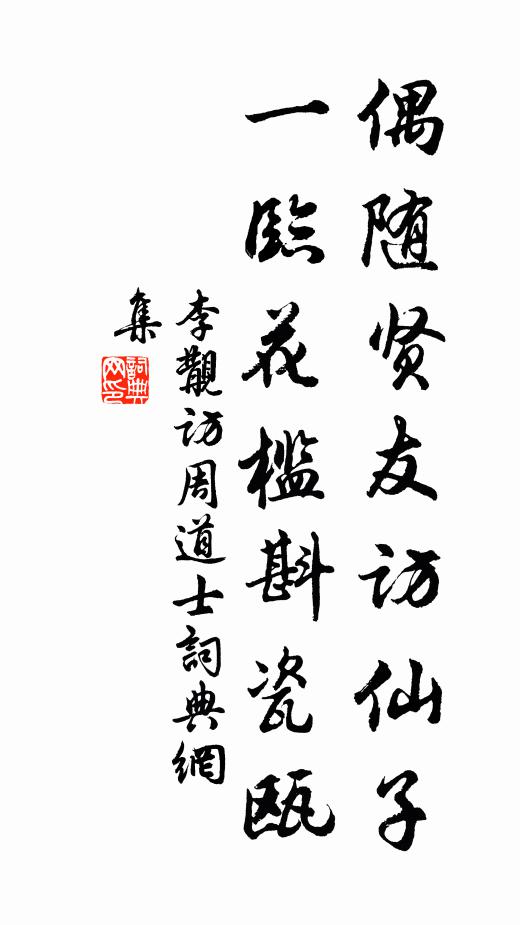 偶随贤友访仙子
一临花槛斟瓷瓯
李覯访周道士詞典網
集
詞典
网印